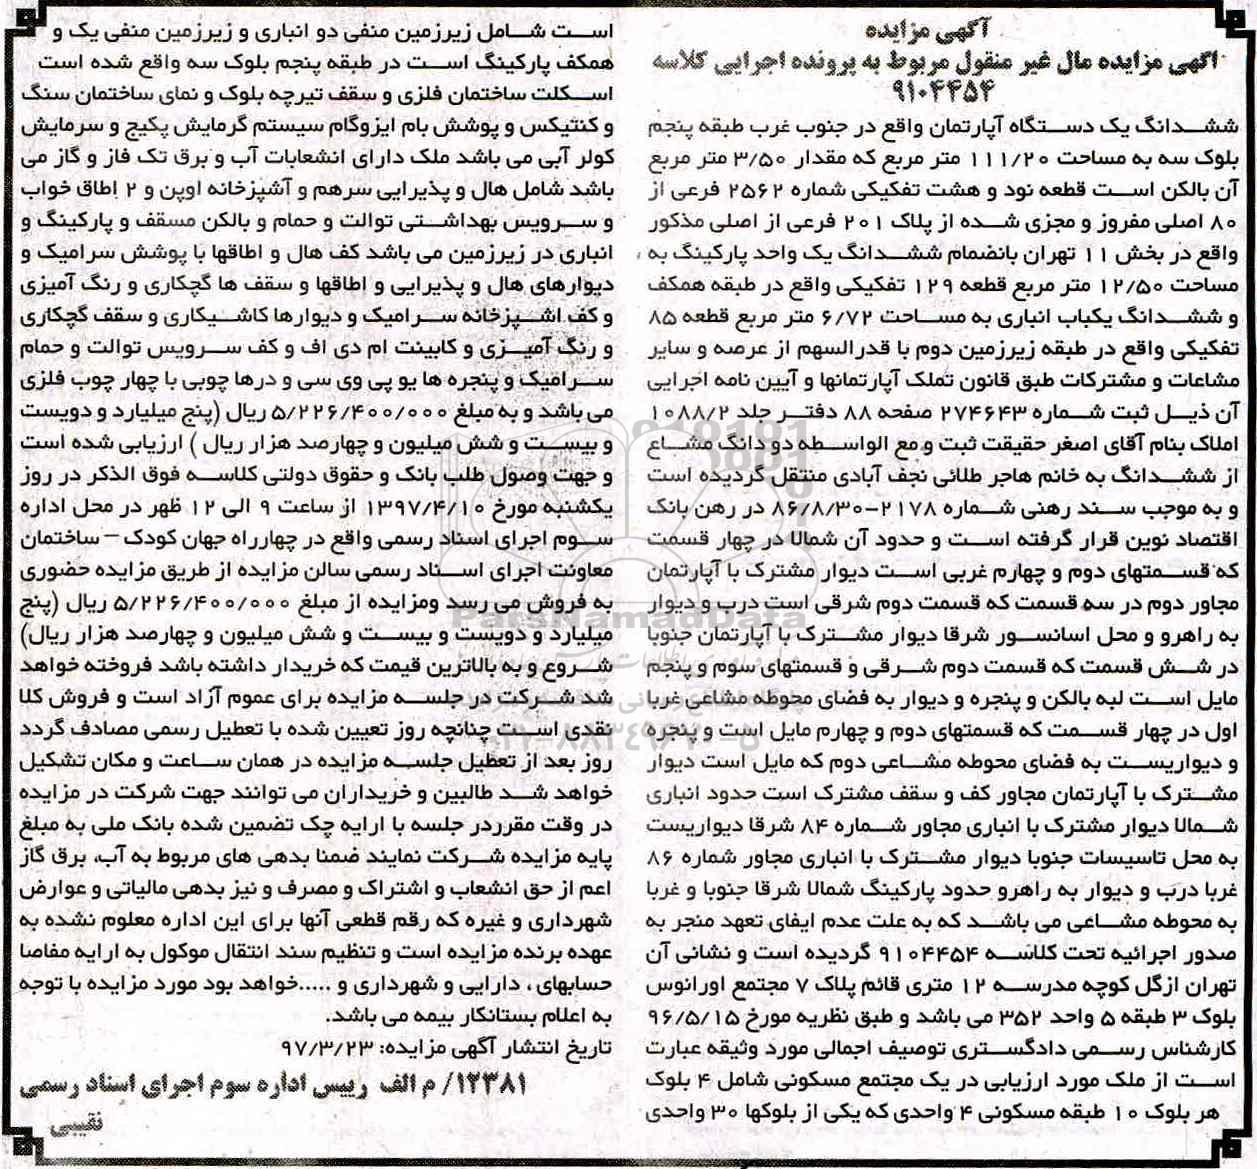 آگهی مزایده
اگهی مزایده مال غیر منقول مربوط به پرونده اجرایی کلاسه
۹۱۰۴۴۵۴
ششدانگ یک دستگاه آپارتمان واقع در جنوب غرب طبقه پنجم
بلوک سه به مساحت ۱۱۱/۲۰ متر مربع که مقدار ۳/۵۰ متر مربع
آن بالکن است قطعه نود و هشت تفکیکی شماره ۲۵۶۲ فرعی از
۸۰ اصلی مفروز و مجزی شده از پلاک ۲۰۱ فرعی از اصلی مذکور
واقع در بخش ۱۱ تهران بانضمام ششدانگ یک واحد پارکینگ به
مساحت ۱۲/۵۰ متر مربع قطعه ۱۲۹ تفکیکی واقع در طبقه همکف
و ششدانگ یکباب انباری به مساحت ۶/۷۲ متر مربع قطعه ۸۵
تفکیکی واقع در طبقه زیرزمین دوم با قدرالسهم از عرصه و سایر
مشاعات و مشترکات طبق قانون تملک آپارتمانها و آیین نامه اجرایی
آن ذیل ثبت شماره ۲۷۴۶۴۳ صفحه ۸۸ دفتر جلد ۱۰۸۸/۲
املاک بنام آقای اصغر حقیقت ثبت و مع الواسطه دو دانگ مشاع
از ششدانگ به خانم هاجر طلائی نجف آبادی منتقل گردیده است
و به موجب سند رهنی شماره ۲۱۷۸-۸۶/۸/۳۰ در رهن بانک
اقتصاد نوین قرار گرفته است و حدود آن شمالا در چهار قسمت
که قسمتهای دوم و چهارم غربی است دیوار مشترک با آپارتمان
مجاور دوم در سه قسمت که قسمت دوم شرقی است درب و دیوار
به راهرو و محل اسانسور شرقا دیوار مشترک با آپارتمان جنوبا
در شش قسمت که قسمت دوم شرقی و قسمتهای سوم و پنجم
مایل است لبه بالکن و پنجره و دیوار به فضای محوطه مشاعی غربا
اول در چهار قسمت که قسمتهای دوم و چهارم مایل است و پنجره
و دیواریست به فضای محوطه مشاعی دوم که مایل است دیوار
مشترک با آپارتمان مجاور کف و سقف مشترک است حدود انباری
شمالا دیوار مشترک با انباری مجاور شماره ۸۴ شرقا دیواریست
به محل تاسیسات جنوبا دیوار مشترک با انباری مجاور شماره ۸۶
غربا درب و دیوار به راهرو حدود پارکینگ شمالا شرقا جنوبا و غربا
به محوطه مشاعی می باشد که به علت عدم ایفای تعهد منجر به
صدور اجرائیه تحت کلاسه ۹۱۰۴۴۵۴ گردیده است و نشانی آن
تهران ازگل کوچه مدرسه ۱۲ متری قائم پلاک ۷ مجتمع اورانوس
بلوک ۳ طبقه ۵ واحد ۳۵۲ می باشد و طبق نظریه مورخ ۹۶/۵/۱۵
کارشناس رسمی دادگستری توصیف اجمالی مورد وثیقه عبارت
است از ملک مورد ارزیابی در یک مجتمع مسکونی شامل ۴ بلوک
هر بلوک ۱۰ طبقه مسکونی ۴ واحدی که یکی از بلوکها ۳۰ واحدی
است شامل زیرزمین منفی دو انباری و زیرزمین منفی یک و
همکف پارکینگ است در طبقه پنجم بلوک سه واقع شده است
اسکلت ساختمان فلزی و سقف تیرچه بلوک و نمای ساختمان سنگ
و کنتیکس و پوشش بام ایزوگام سیستم گرمایش پکیج و سرمایش
کولر آبی می باشد ملک دارای انشعابات آب و برق تک فاز و گاز می
باشد شامل هال و پذیرایی سرهم و آشپزخانه اوپن و ۲ اطاق خواب
و سرویس بهداشتی توالت و حمام و بالکن مسقف و پارکینگ و
انباری در زیرزمین می باشد کف هال و اطاقها با پوشش سرامیک و
دیوارهای هال و پذیرایی و اطاقها و سقف ها گچکاری و رنگ آمیزی
و کف اشپزخانه سرامیک و دیوارها کاشیکاری و سقف گچکاری
و رنگ آمیزی و کابینت ام دی اف و کف سرویس توالت و حمام
سرامیک و پنجره ها یو پی وی سی و درها چوبی با چهار چوب فلزی
می باشد و به مبلغ ۵/۲۲۶/۴۰۰/۰۰۰ ریال (پنج میلیارد و دویست
و بیست و شش میلیون و چهارصد هزار ریال ) ارزیابی شده است
و جهت وصول طلب بانک و حقوق دولتی کلاسه فوق الذکر در روز
یکشنبه مورخ ۱۳۹۷/۴/۱۰ از ساعت ۹ الی ۱۲ ظهر در محل اداره
سوم اجرای اسناد رسمی واقع در چهارراه جهان کودک – ساختمان
معاونت اجرای اسناد رسمی سالن مزایده از طریق مزایده حضوری
به فروش می رسد ومزایده از مبلغ ۵/۲۲۶/۴۰۰/۰۰۰ ریال (پنج
میلیارد و دویست و بیست و شش میلیون و چهارصد هزار ریال)
شروع و به بالاترین قیمت که خریدار داشته باشد فروخته خواهد
شد شرکت در جلسه مزایده برای عموم آزاد است و فروش کلا
نقدی است چنانچه روز تعیین شده با تعطیل رسمی مصادف گردد
روز بعد از تعطیل جلسه مزایده در همان ساعت و مکان تشکیل
خواهد شد طالبین و خریداران می توانند جهت شرکت در مزایده
در وقت مقرردر جلسه با ارایه چک تضمین شده بانک ملی به مبلغ
پایه مزایده شرکت نمایند ضمنا بدهی های مربوط به آب، برق گاز
اعم از حق انشعاب و اشتراک و مصرف و نیز بدهی مالیاتی و عوارض
شهرداری و غیره که رقم قطعی آنها برای این اداره معلوم نشده به
عهده برنده مزایده است و تنظیم سند انتقال موکول به ارایه مفاصا
حسابهای ، دارایی و شهرداری و .....خواهد بود مورد مزایده با توجه
به اعلام بستانکار بیمه می باشد.
تاریخ انتشار آگهی مزایده: ۹۷/۳/۲۳
۱۲۳۸۱/ م الف رییس اداره سوم اجرای اسناد رسمی
نقیبی
ParsNamadData
۰۲۱-۸۸۳۴۹۶۷۰-۵